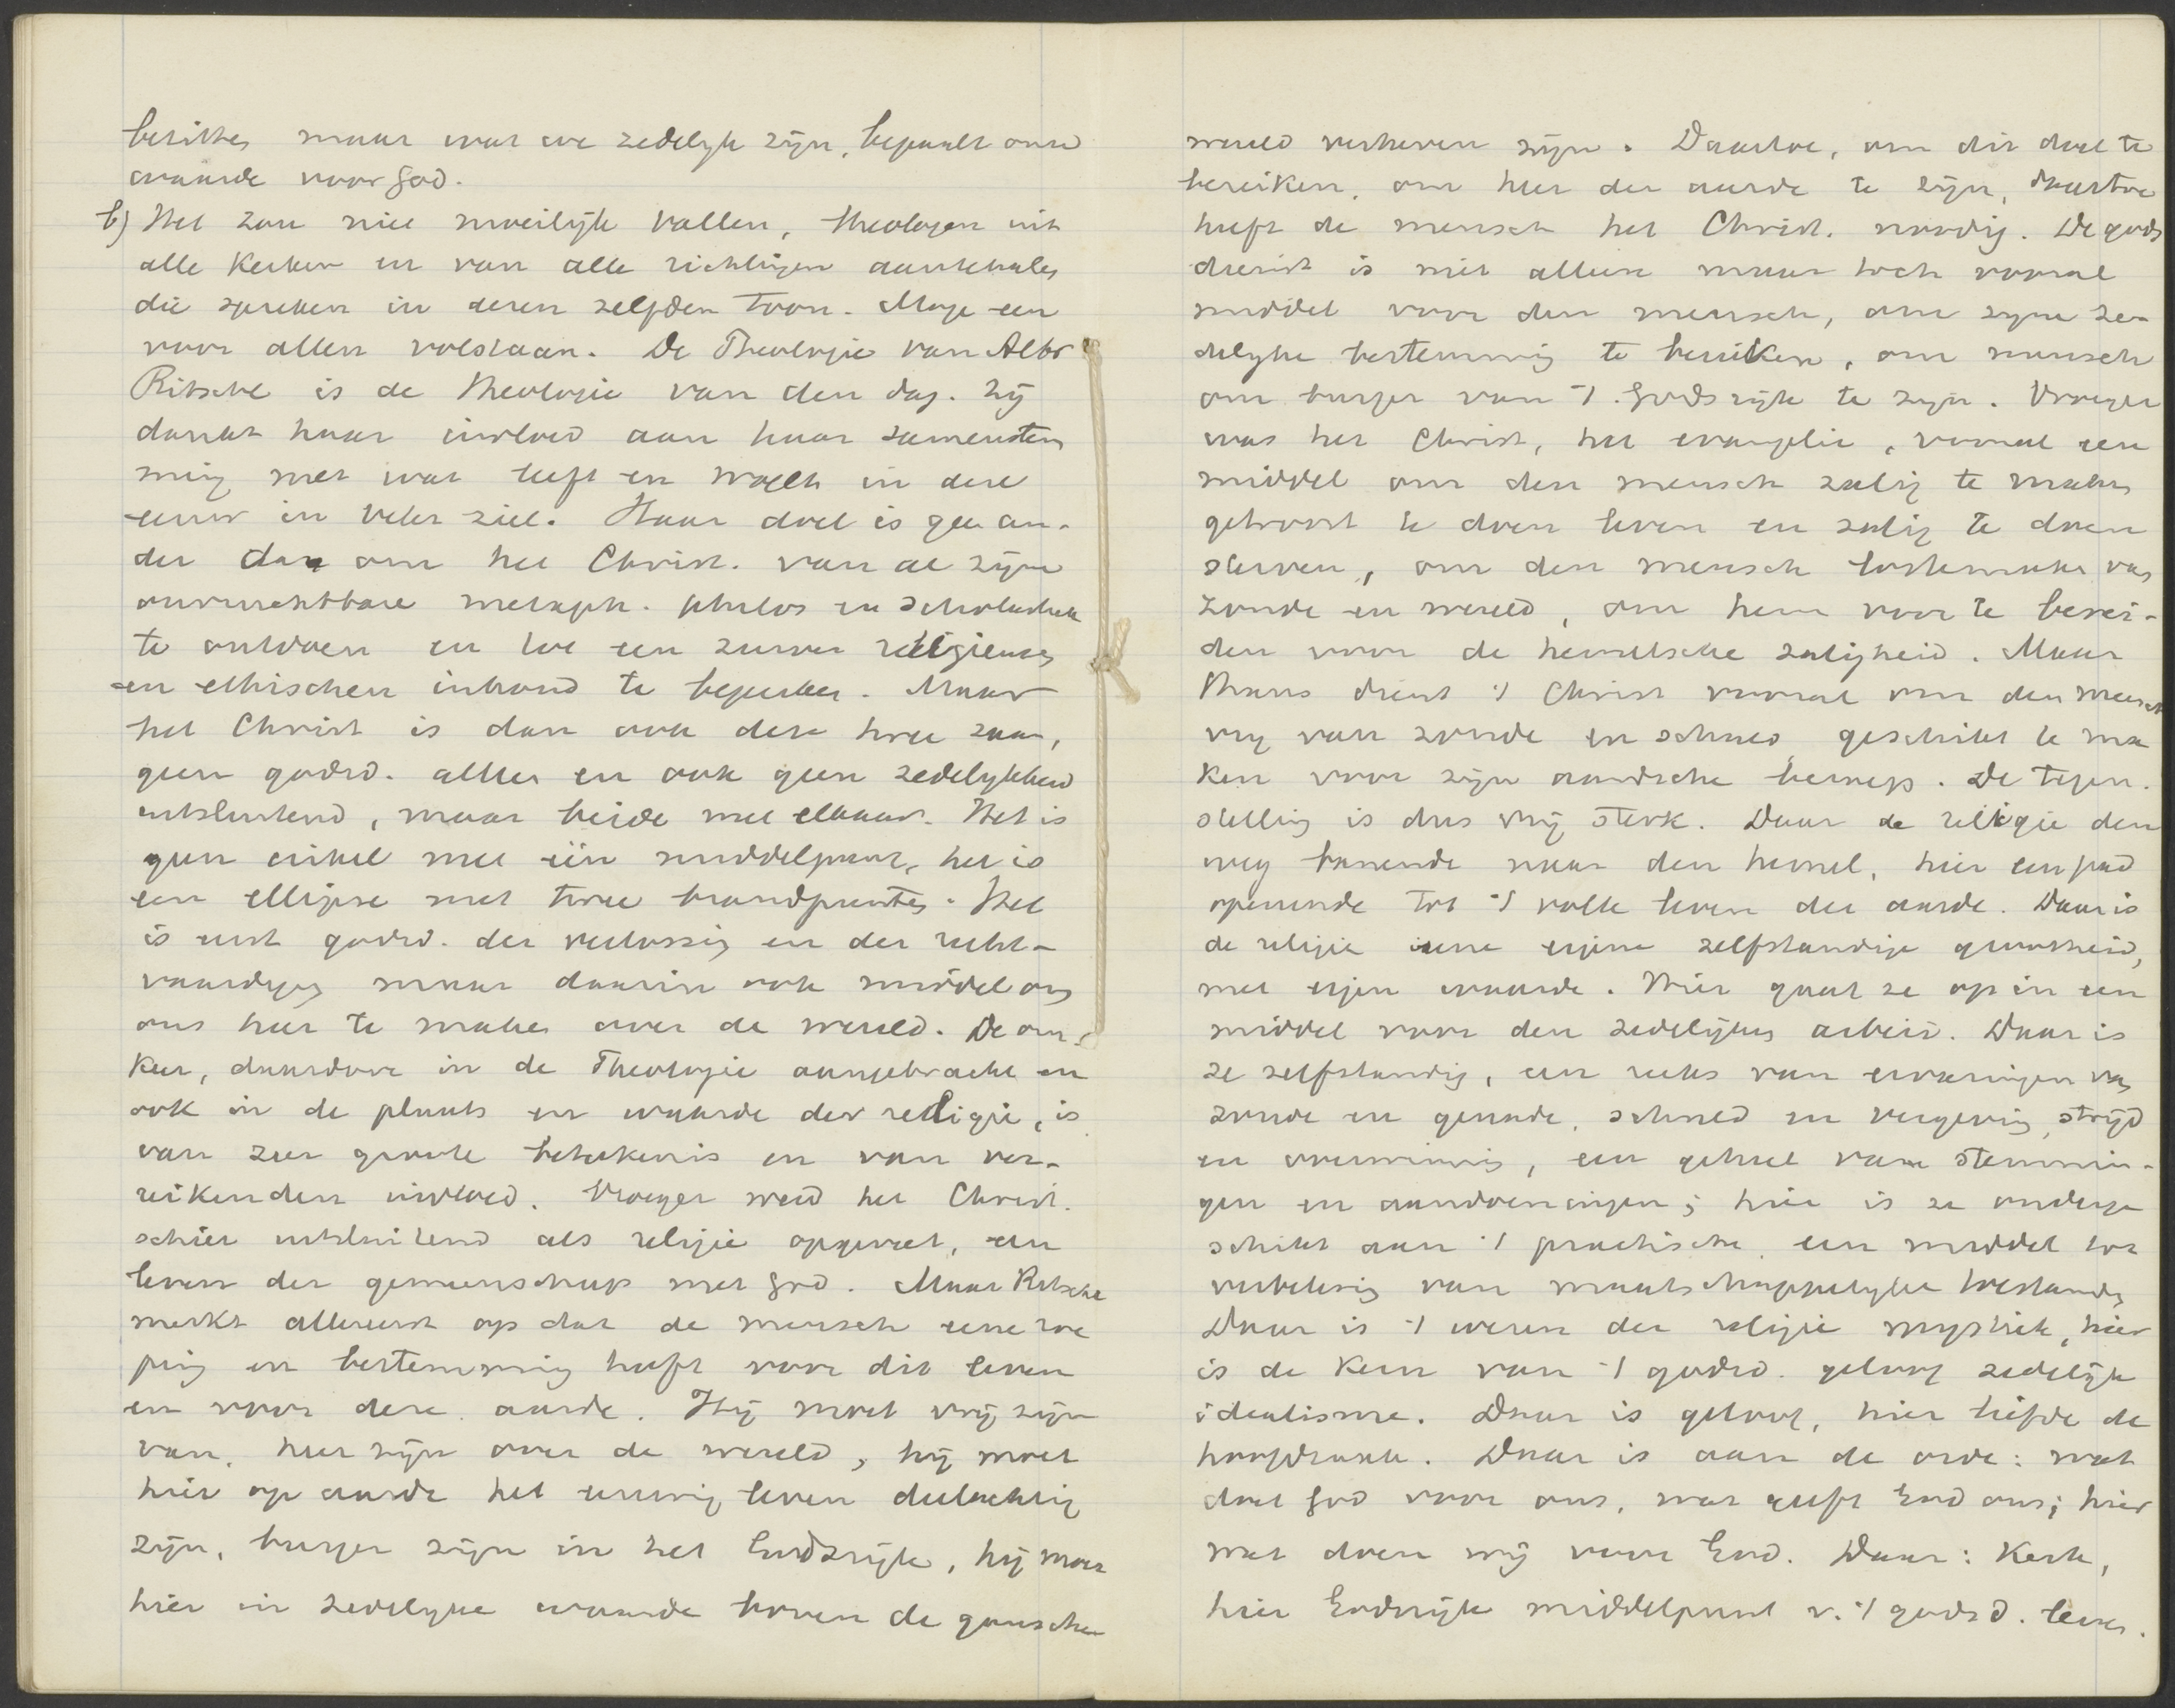 besitten maar wat we zedelyk zijn, bepaalt onse
waarde voor God.
b) Het zou niet moeilijk vallen, theologen uit
alle Kerken en van alle richtingen aantehalen
die spreken in dezen zelfden toon. Moge een
voor allen volstaan. De Theologie van Albr
Ritschl is de theologie van den dag. Zij
dankt haar invloed aan haar samenstem
ming met wat leeft en woelt in deze
eeuw in veler ziel. Haar doel is geen an-
der dan om het Christ. van al zijne
onvruchtbare metaph. philos en scholastiek
te ontdoen en tot een zuiver religieusen
en ethischen inhoud te beperken. Maar
het Christ is dan ook deze twee zaam,
geen godsd. alleen en ook geen zedelykheid
uitsluitend, maar beide met elkaar. Het is
geen cirkel met één middelpunt, het is
een ellipse met twee brandpunten. Het
is eerst godsd. der verlossing en der recht-
vaardiging maar daarin ook middel om
ons heer te maken over de wereld. De om-
keer, daardoor in de Theologie aangebracht en
ook in de plaats en waarde der religie, is
van zeer groote betekenis en van ver-
reikenden invloed. Vroeger werd het Christ.
schier uitsluitend als religie opgevat, een
leven der gemeenschap met God. Maar Ritschl
merkt allereerst op dat de mensch eene roe
ping en bestemming heeft voor dit leven
en voor deze aarde. Hij moet vrij zijn
van, heer zijn over de wereld, hij moet
hier op aarde het eeuwig leven deelachtig
zijn, burger zijn in het Godsrijk, hij moet
hier in zedelyke waarde boven de gansche
wereld verheven zijn. Daartoe, om dit doel te
bereiken, om heer der aarde te zijn, daartoe
heeft de mensch het Christ. noodig. De gods
dienst is niet alleen maar toch vooral
middel voor den mensch, om zyne ze-
delyke bestemming te bereiken, om mensch
om burger van 't Godsrijk te zijn. Vroeger
was het Christ, het evangelie, vooral een
middel om den mensch zalig te maken
getroost te doen leven en zalig te doen
sterven, om den mensch lostemaken van
zonde en wereld, om hem voor te berei-
den voor de hemelsche zaligheid. Maar
thans dient 't Christ vooral om den mensch
vrij van zonde en schuld geschikt te ma
ken voor zijn aardsche beroep. De tegen-
stelling is dus vrij sterk. Daar de religie den
weg banende naar den hemel, hier een pad
openende tot 't volle leven der aarde. Daar is
de religie eene eigene zelfstandige grootheid,
met eigen waarde. Hier gaat ze op in een
middel voor den zedelijken arbeid. Daar is
ze zelfstandig, een reeks van ervaringen van
zonde en genade, schuld en vergeving, strijd
en overwinning, een geheel van stemmin-
gen en aandoeningen; hier is ze onderge
schikt aan 't practische, een middel tot
verbetering van maatschappelyke toestanden
Daar is 't wezen der religie mystiek, hier
is de kern van 't godsd. geloof zedelijk
idealisme. Daar is geloof, hier liefde de
hoofdzaak. Daar is aan de orde: wat
doet God voor ons, wat geeft God ons; hier
wat doen wij voor God. Daar: Kerk,
hier Godsrijk middelpunt v. 't godsd. leven.